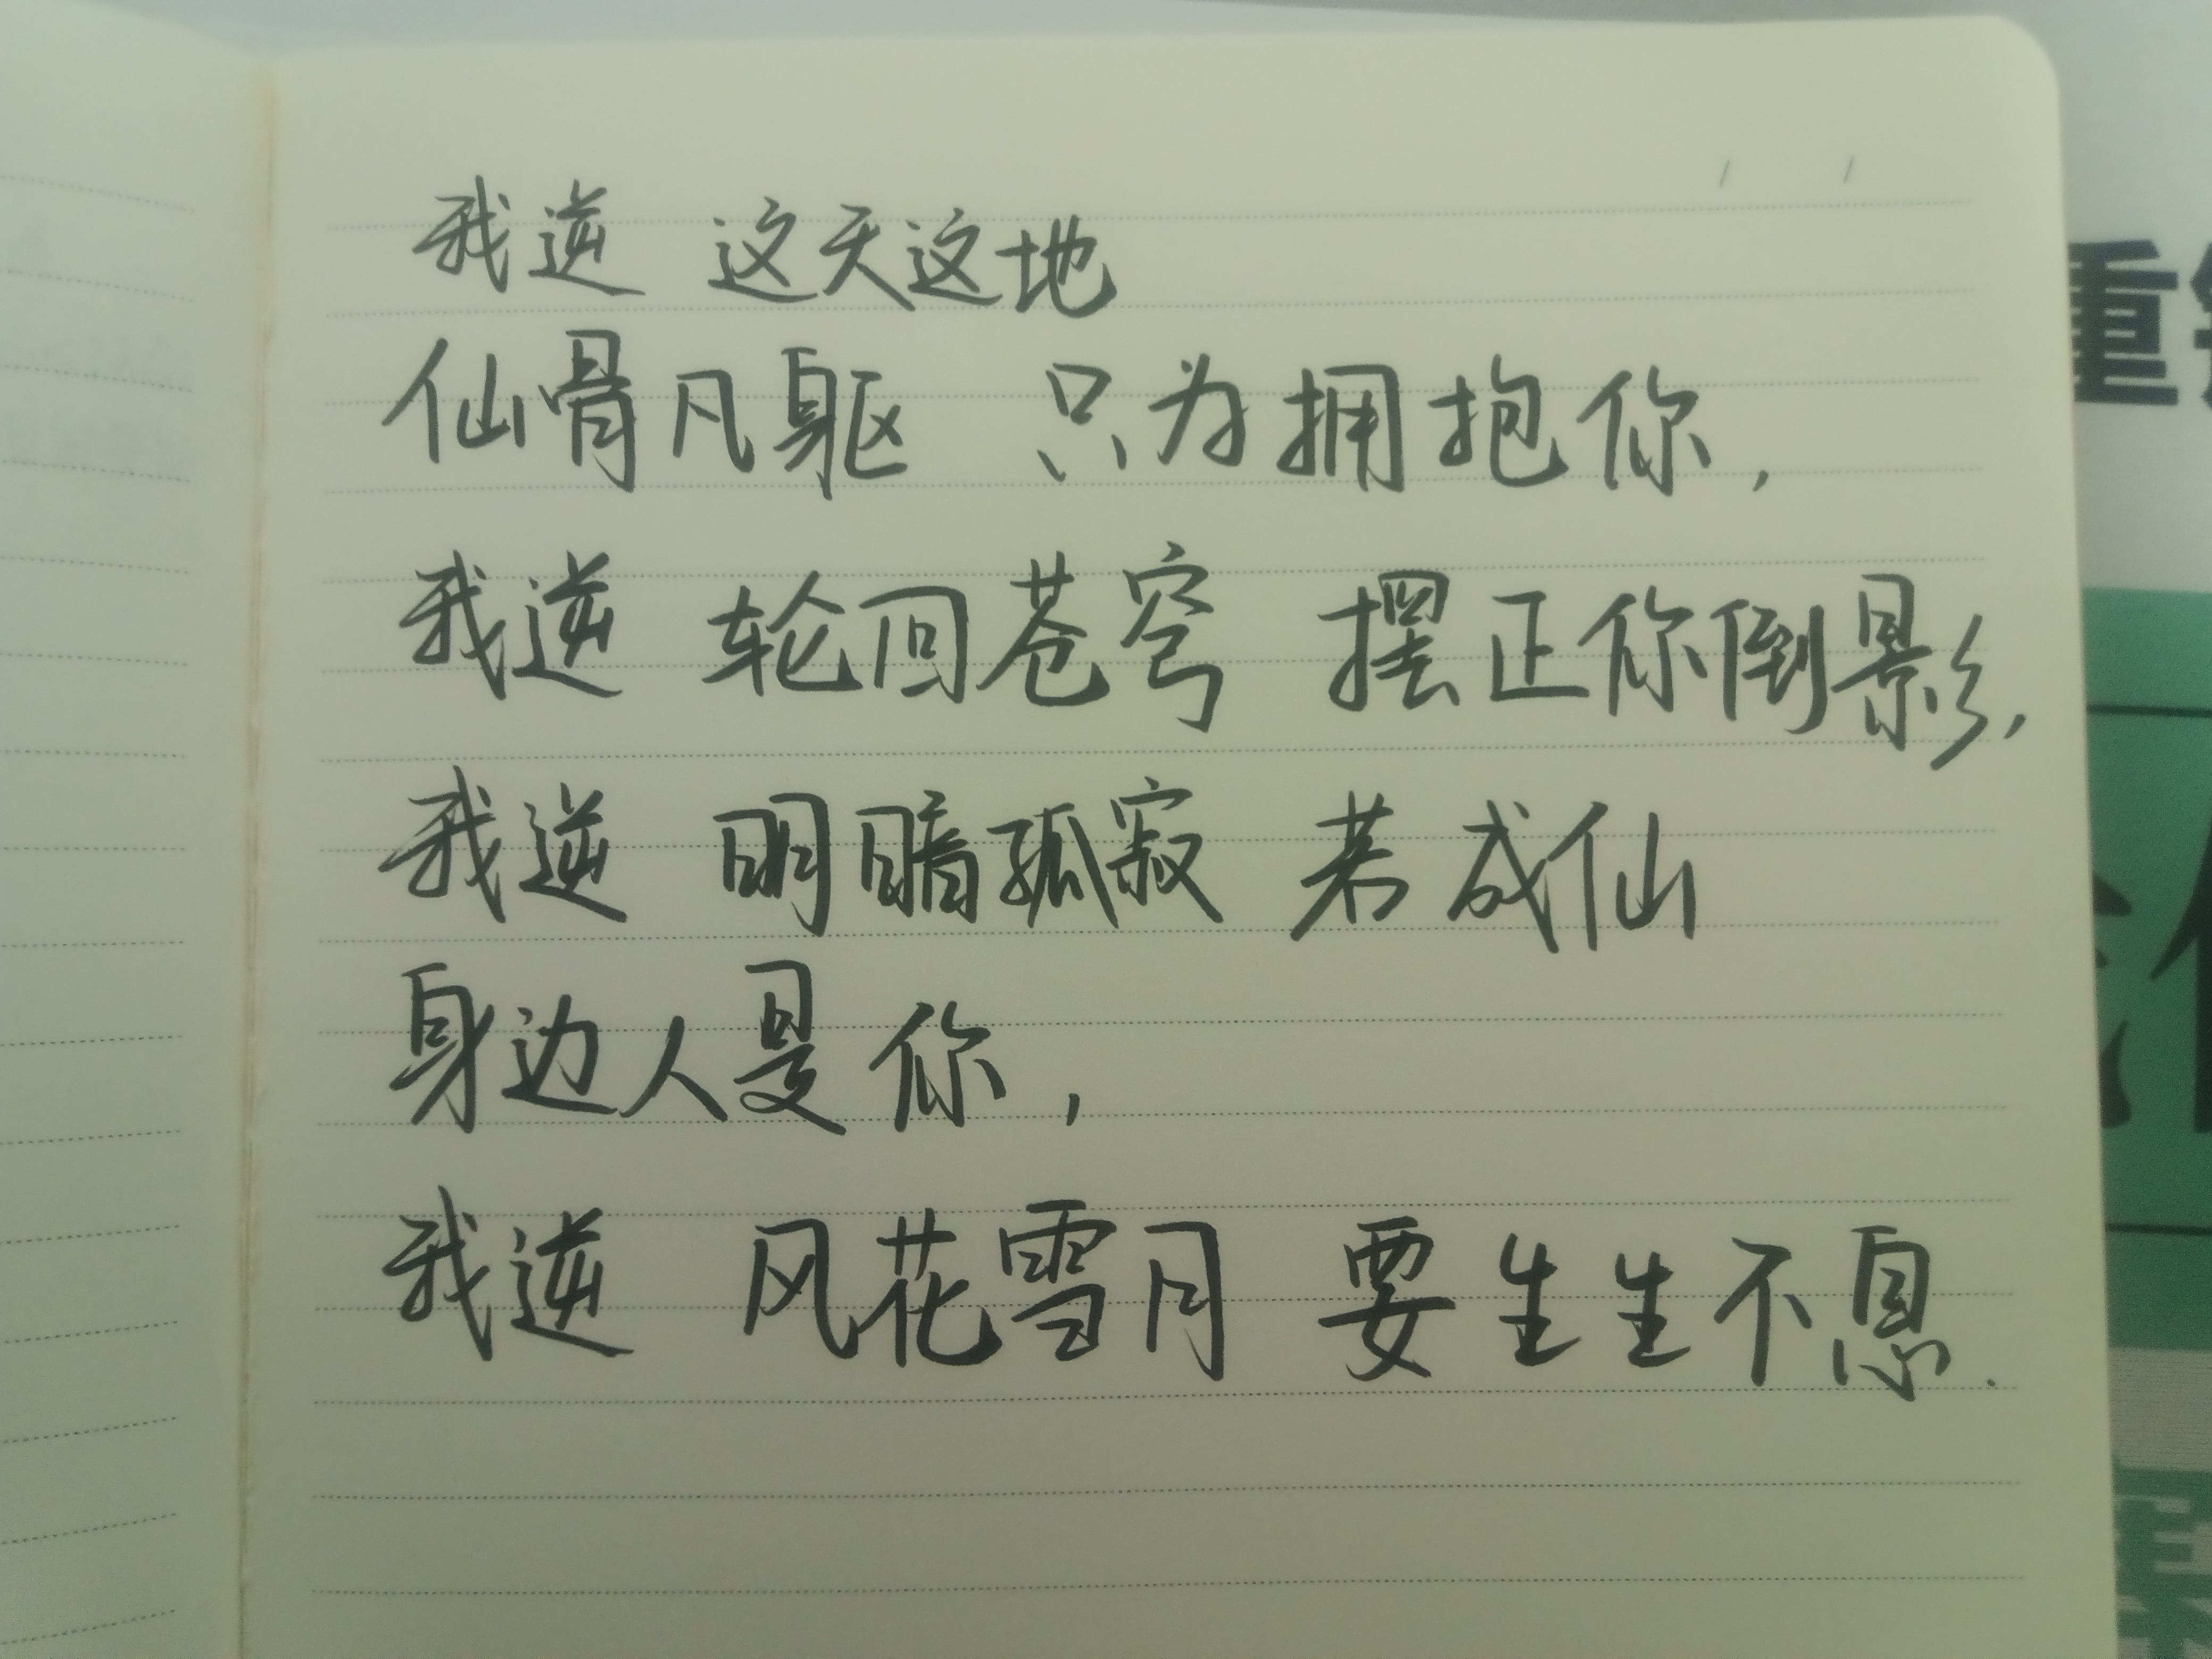 我逆 这天这地
仙骨凡躯 只为拥抱你，
我逆 轮回苍穹 摆正你倒影，
我逆 明暗孤寂 若成仙
身边人是你，
我逆 风花雪月 要生生不息.
重